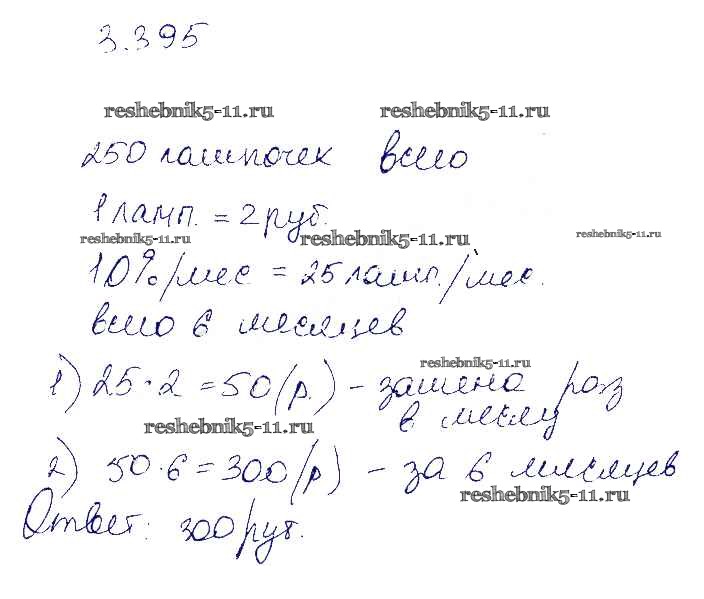 3.395
reshebnik5-11.ru reshebnik5-11.ru
250 лампочек всего
1 ламп. = 2 руб.
reshebnik5-11.ru reshebnik5-11.ru reshebnik5-11.ru
10%/мес = 25 ламп./мес.
всего 6 месяцев
reshebnik5-11.ru
1) 25 · 2 = 50 (р.) – замена раз
в месяц
reshebnik5-11.ru
2) 50 · 6 = 300 (р) – за 6 месяцев
reshebnik5-11.ru
Ответ: 300 руб.